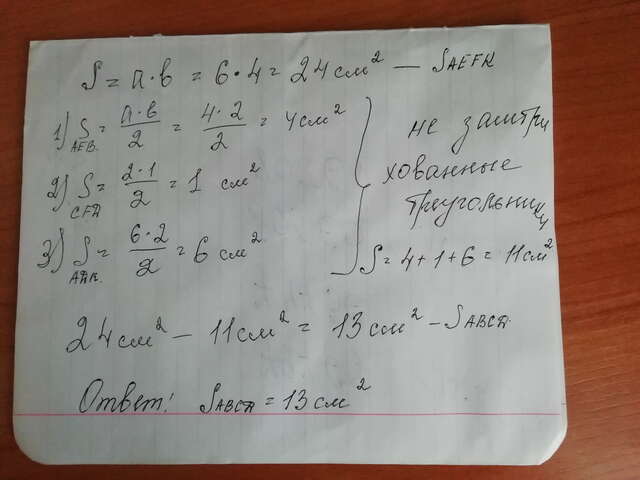 S = a·b = 6·4 = 24 см² — SAEFK
1) S AEB. = a·b/2 = 4·2/2 = 4 см²
2) S CFД = 2·1/2 = 1 см²
3) S AДK. = 6·2/2 = 6 см²
не заштри
хованные
треугольники
S = 4+1+6 = 11 см²
24 см² – 11 см² = 13 см² – SABCД
Ответ: SABCД = 13 см²